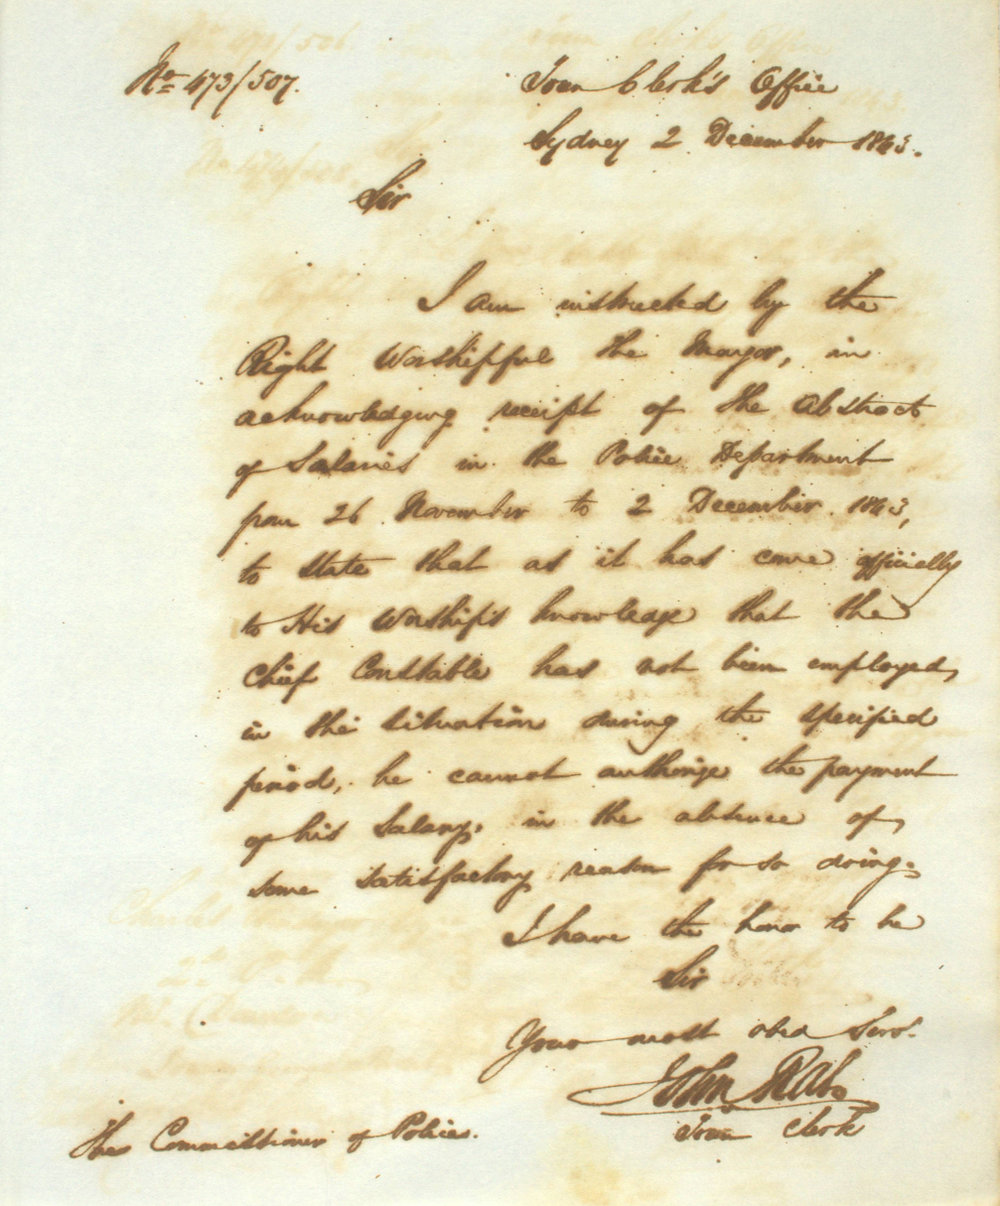 No 473/507.
Town Clerk's Office
Sydney 2 December 1843.
Sir
I am instructed by the
Right Worshipful the Mayor, in
acknowledging receipt of the Abstract
of Salaries in the Police Department
from 26 November to 2 December 1843,
to state that as it has come officially
to His Worship's knowledge that the
Chief Constable has not been employed
in the situation during the specified
period, he cannot authorize the payment
of his Salary, in the absence of
some satisfactory reason for so doing.
I have the honor to be
Sir
Your most obed Servt.
John Rae
Town Clerk
The Commissioner of Police.